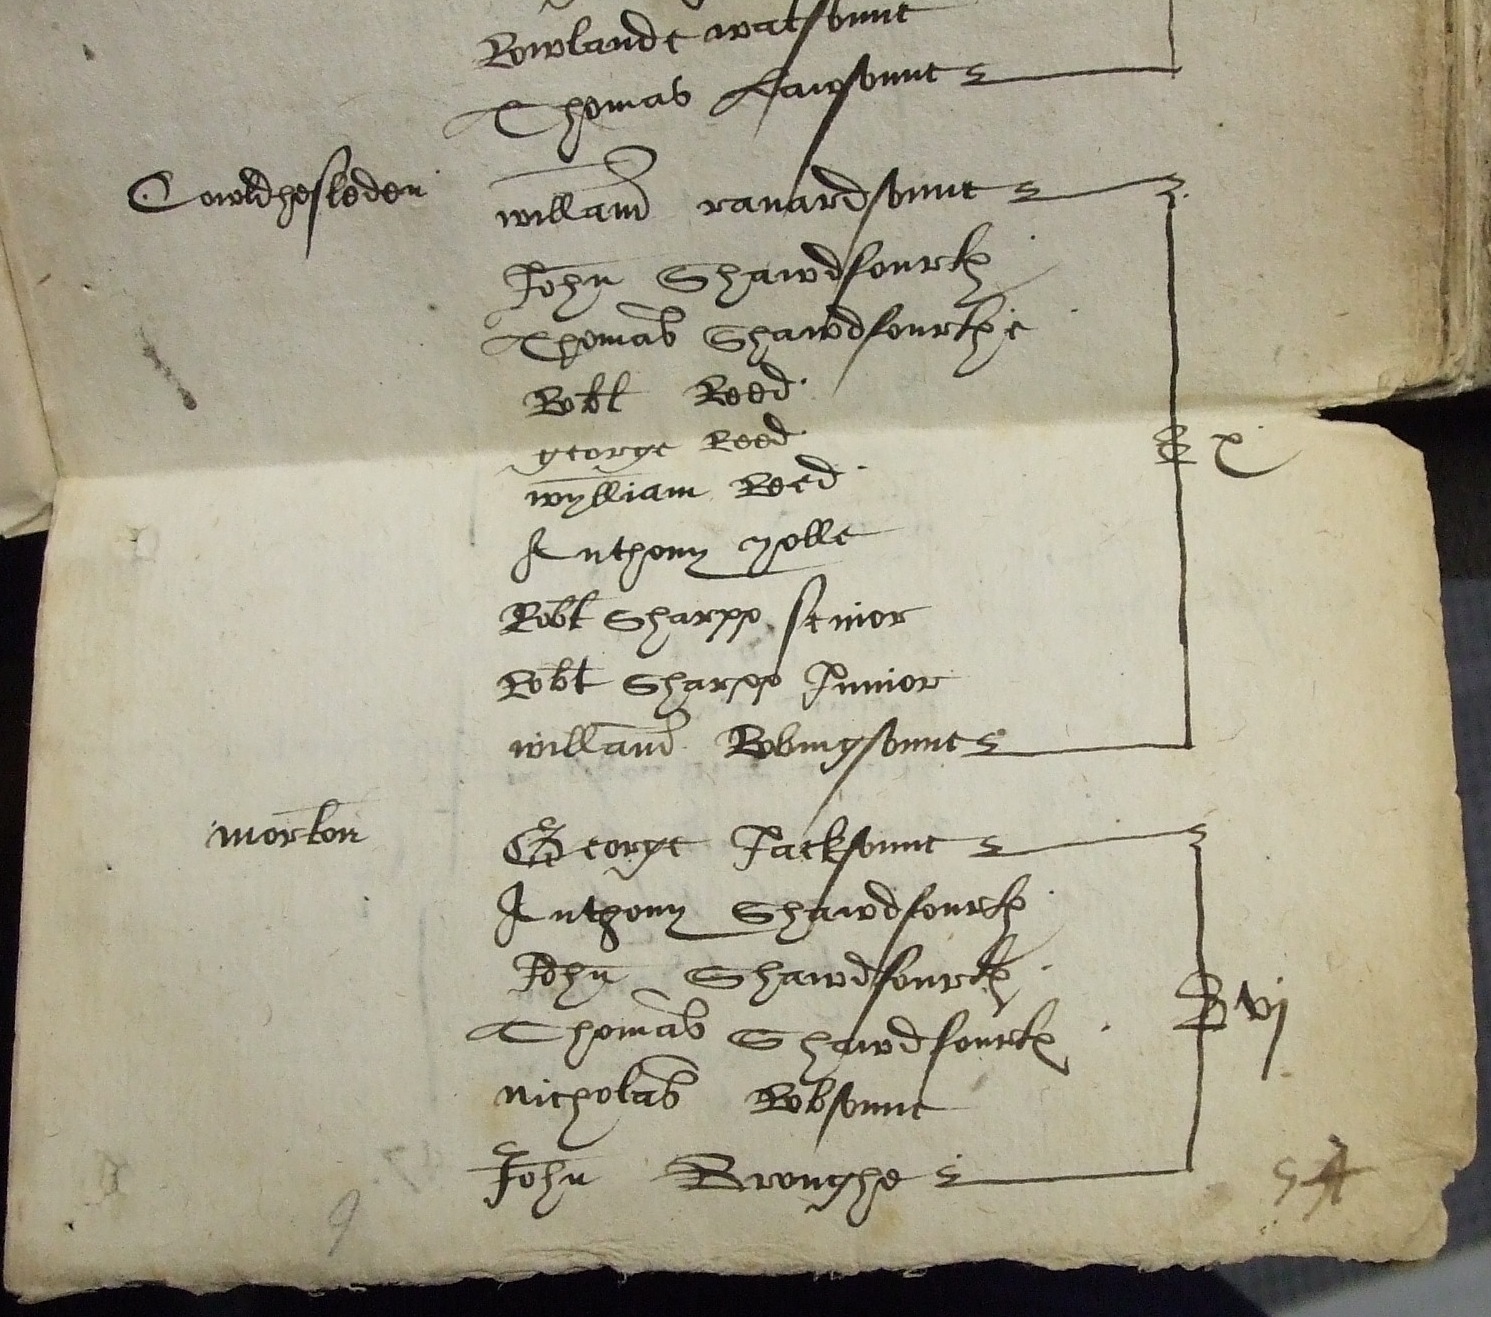 Rowlande watsonne
Thomas Lawsonne
Cowldhesleden willam ranardsonne
John Shawdfourth
Thomas Shawdfourthe
Robt Reed
george Reed
wylliam Reed x
Anthony yolle
Robt Sharpp senior
Robt Sharpp Junior
willam Robingsonne
morton George Jacksonne
Anthony Shawdfourth
John Shawdfourth
Thomas Shawdfourth vj
Nicholas Robsonne
John Broughe
9